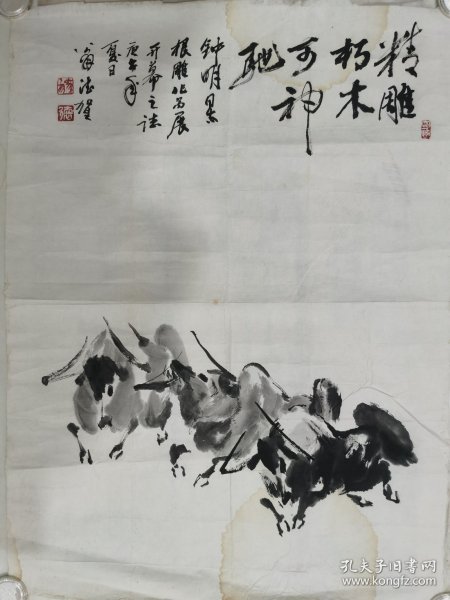 精雕
朽木
可神
驰
钟明果
根雕作品展
开幕之诗
庚午年
夏日
德贺
孔夫子旧书网
www.kongfz.com